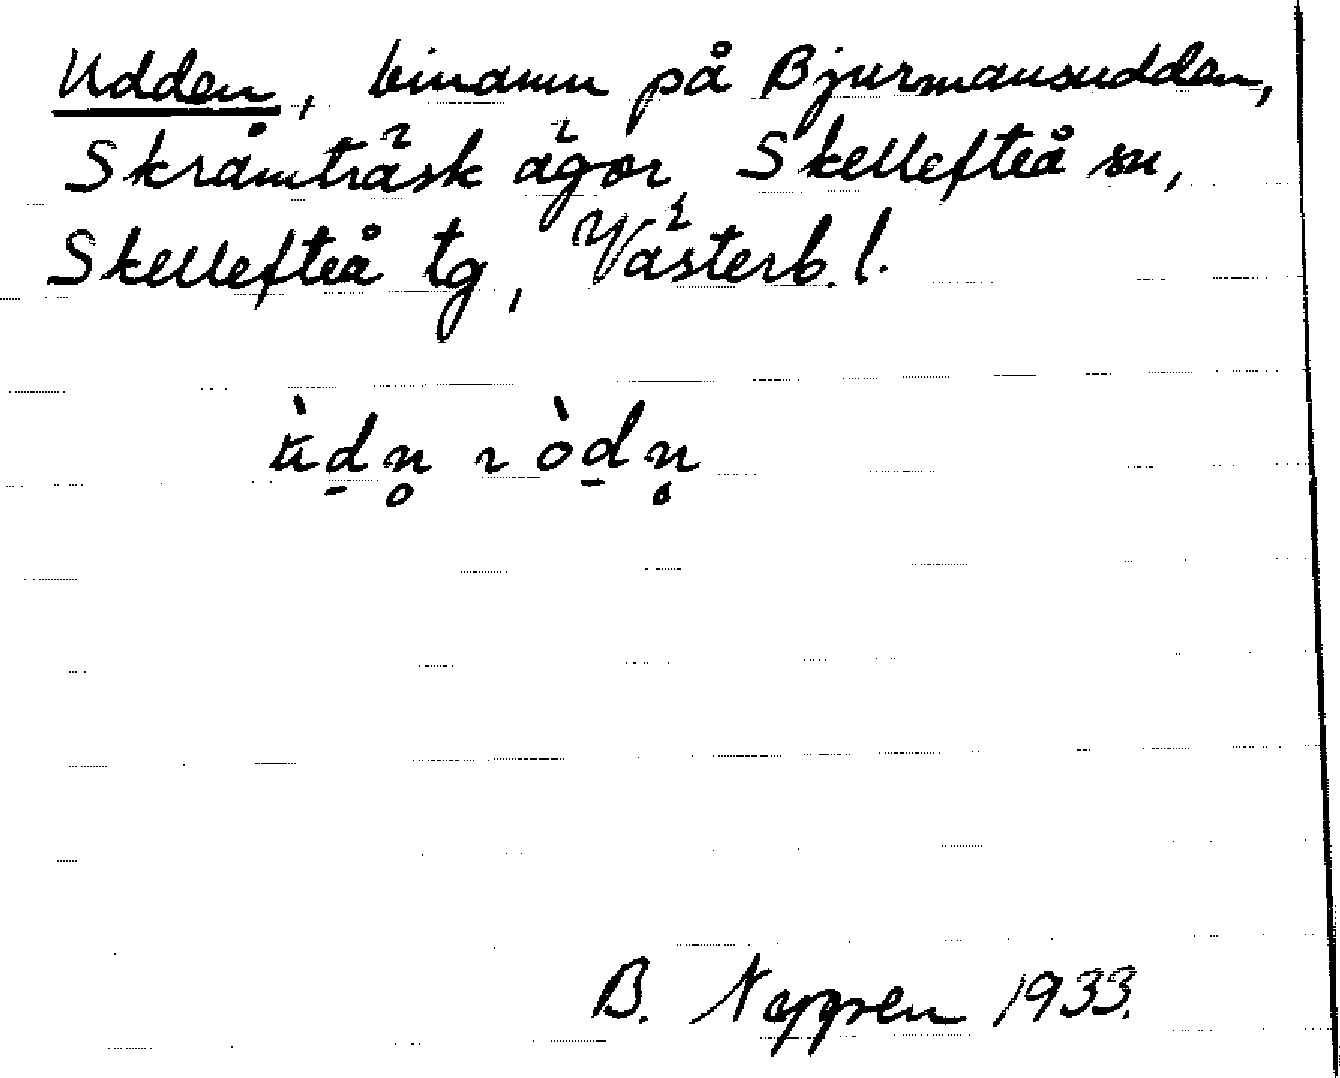 Udden, binamn på Bjurmansudden,
Skråmträsk ägor, Skellefteå sn,
Skellefteå tg, Västerb. l.
ù̶d̠n̥ ɿ òd̠n̥
B. Nygren 1933.